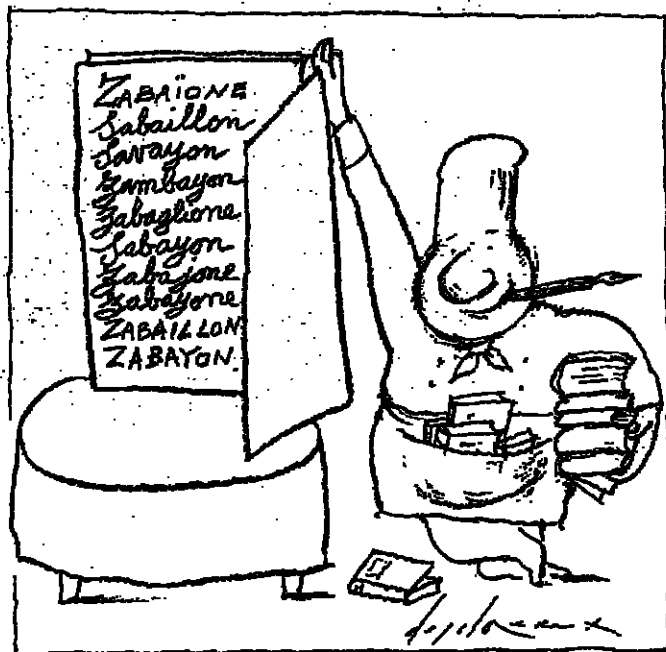 ZABAÏONE
Sabaillon
Savayon
Zambayon
Zabaglione
Sabayon
Zabajone
Zabayone
ZABAILLON
ZABAYON.